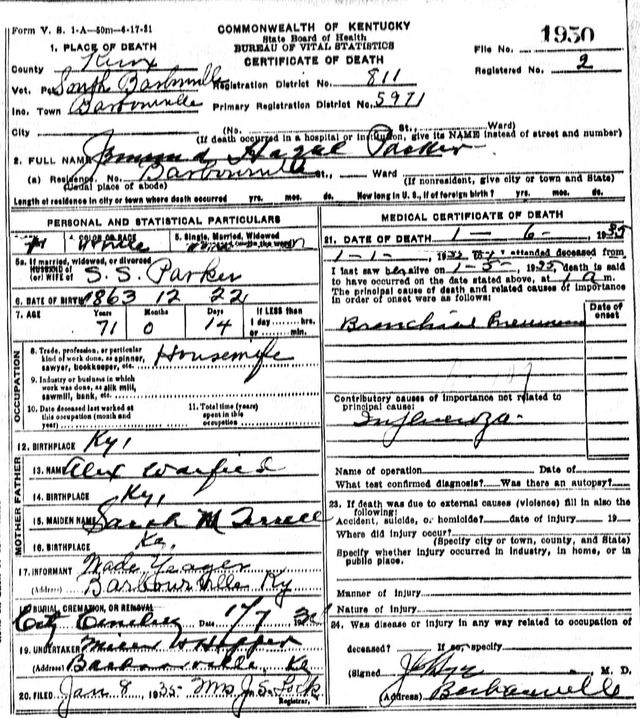 Form V. S. 1-A—50m—4-17-31
COMMONWEALTH OF KENTUCKY
State Board of Health
BUREAU OF VITAL STATISTICS
CERTIFICATE OF DEATH
File No. 1950
Registered No. 2
1. PLACE OF DEATH
County Knox
Vot. Pct. South Barbourville
Registration District No. 811
Inc. Town Barbourville
Primary Registration District No. 5971
City (No. St., Ward)
(If death occurred in a hospital or institution, give its NAME instead of street and number)
2. FULL NAME Parker
(a) Residence. No. Barbourville St., Ward
(Usual place of abode) (If nonresident, give city or town and State)
Length of residence in city or town where death occurred yrs. mos. ds. How long in U. S., if of foreign birth? yrs. mos. ds.
PERSONAL AND STATISTICAL PARTICULARS
4. COLOR OR RACE
5. Single, Married, Widowed
5a. If married, widowed, or divorced
HUSBAND of
(or) WIFE of S. S. Parker
6. DATE OF BIRTH 1863 12 22
7. AGE Years Months Days If LESS than
71 0 14 1 day....hrs.
or....min.
OCCUPATION
8. Trade, profession, or particular
kind of work done, as spinner,
sawyer, bookkeeper, etc. Housewife
9. Industry or business in which
work was done, as silk mill,
sawmill, bank, etc.
10. Date deceased last worked at
this occupation (month and
year)
11. Total time (years)
spent in this
occupation
12. BIRTHPLACE Ky,
MOTHER FATHER
13. NAME Alex Warfield
14. BIRTHPLACE Ky,
15. MAIDEN NAME Sarah M Terrell
16. BIRTHPLACE Ky.
17. INFORMANT Wade Yeager
(Address) Barbourville Ky
BURIAL, CREMATION, OR REMOVAL
City Date 1/7
19. UNDERTAKER Hopper
(Address) Barbourville Ky
20. FILED Jan 8 1935 Mrs J. S. Lock
Registrar.
MEDICAL CERTIFICATE OF DEATH
21. DATE OF DEATH 1 - 6 - 1935
1-1- attended deceased from
I last saw h alive on 1-5-, 1935, death is said
to have occurred on the date stated above, at 1 a m.
The principal cause of death and related causes of importance
in order of onset were as follows:
Date of
onset
Bronchial Pneumonia
Contributory causes of importance not related to
principal cause:
Influenza
Name of operation Date of
What test confirmed diagnosis? Was there an autopsy?
23. If death was due to external causes (violence) fill in also the
following:
Accident, suicide, or homicide? date of injury 19
Where did injury occur?
(Specify city or town, county, and State)
Specify whether injury occurred in industry, in home, or in
public place.
Manner of injury
Nature of injury
24. Was disease or injury in any way related to occupation of
deceased? If so, specify
(Signed) M. D.
(Address) Barbourville